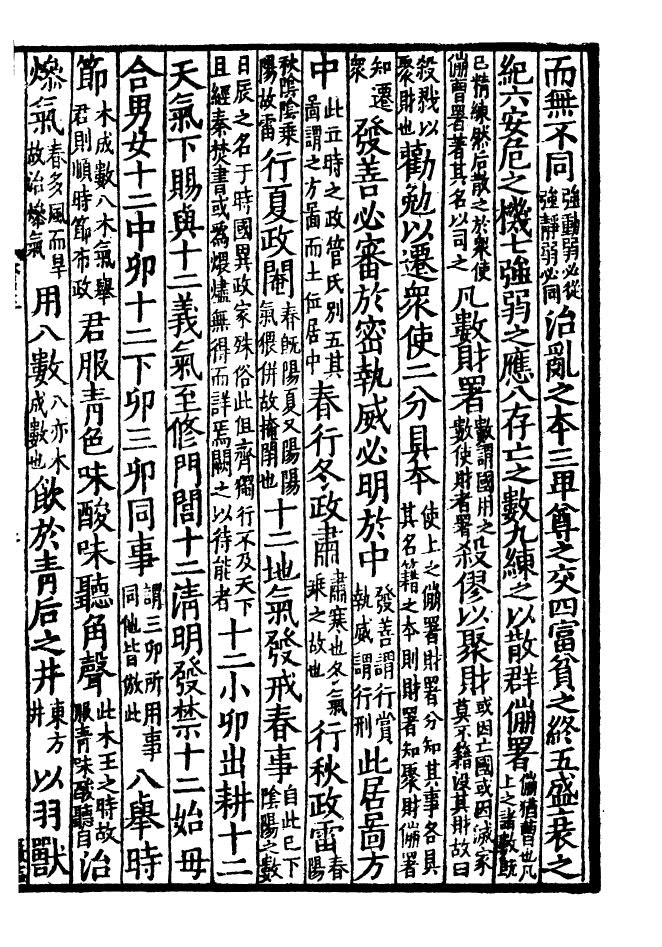 而無不同強動弱必從強靜弱必同治亂之本三卑尊之交四富貧之終五盛衰之
紀六安危之機七強弱之應八存亡之數九練之以散群傰署傰猶曹也凡上之諸數旣
已精練然后散之於衆使傰曹署著其名以司之凡數財署數謂國用之數使財者署殺僇以聚財或因亡國或因滅家莫不籍沒其財故曰
殺戮以聚財也勸勉以遷衆使二分具本使上之傰署財署分知其事各具其名籍之本則財署知聚財傰署
知遷衆發善必審於密執威必明於中發善謂行賞執威謂行刑此居啚方
中此五時之政管氏別五其啚謂之方啚而土位居中春行冬政肅肅寒也冬氣乘之故也行秋政雷春陽
秋陰陰乘陽故雷行夏政閹春旣陽夏又陽陽氣猥併故掩閉也十二地氣發戒春事自此已下陰陽之數
日辰之名于時國異政家殊俗此但齊獨行不及天下且經秦焚書或爲煨燼無得而詳焉闕之以待能者十二小卯出耕十二
天氣下賜與十二義氣至修門閭十二清明發禁十二始毋
合男女十二中卯十二下卯三卯同事謂三卯所用事同他皆倣此八舉時
節木成數八木氣舉君則順時節布政君服青色味酸味聽角聲此木王之時故服青味酸聽角治
燥氣春多風而旱故治燥氣用八數八亦木成數也飲於青后之井東方井以羽獸